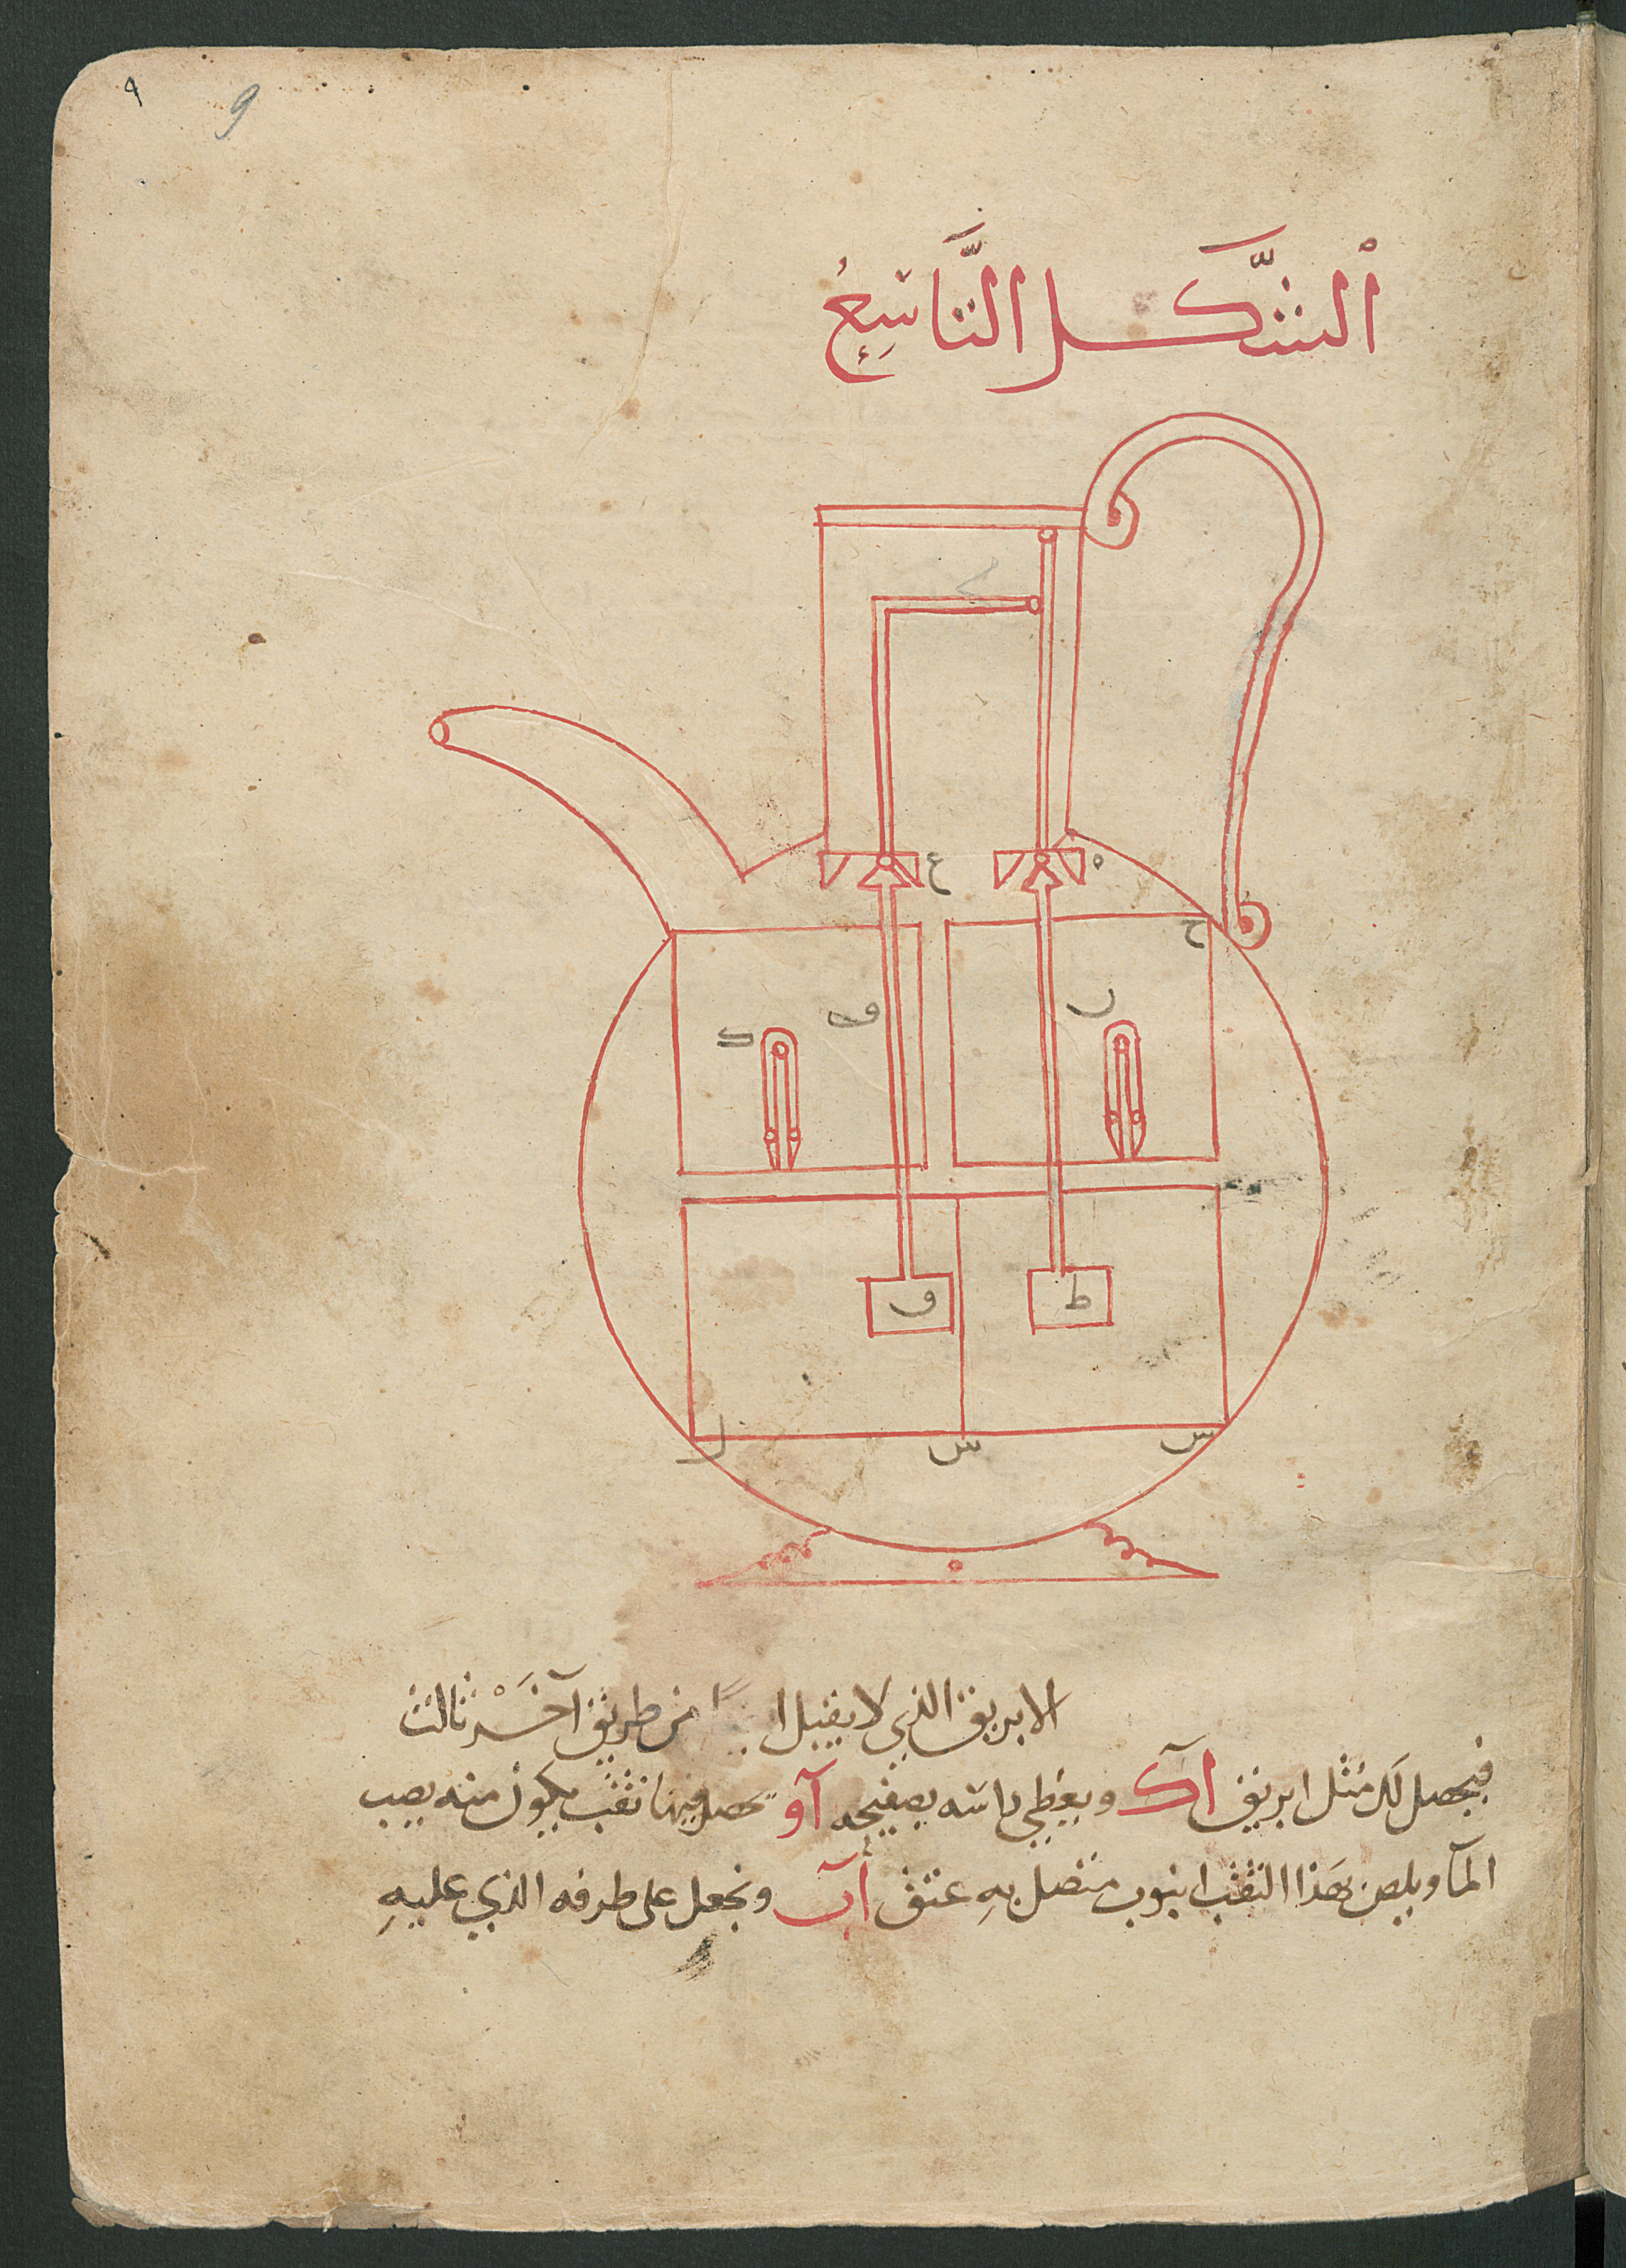 ٩ 9
اَلشَّكل التَّاسِعُ
ه ع
ح
ر ف ك
ط ف
س س ل
الابريق الذي لا يقبل من طريق آخَرْ ثالث
فيحصل لك مثل ابريق آك ويغطي راسه بصفيحه آو فيها ثقب يكون منه يصب
المآ ويلصق بهذا الثقب انبوب متصل بهِ عنق آب ونجعل على طرفه الذي عليهِ